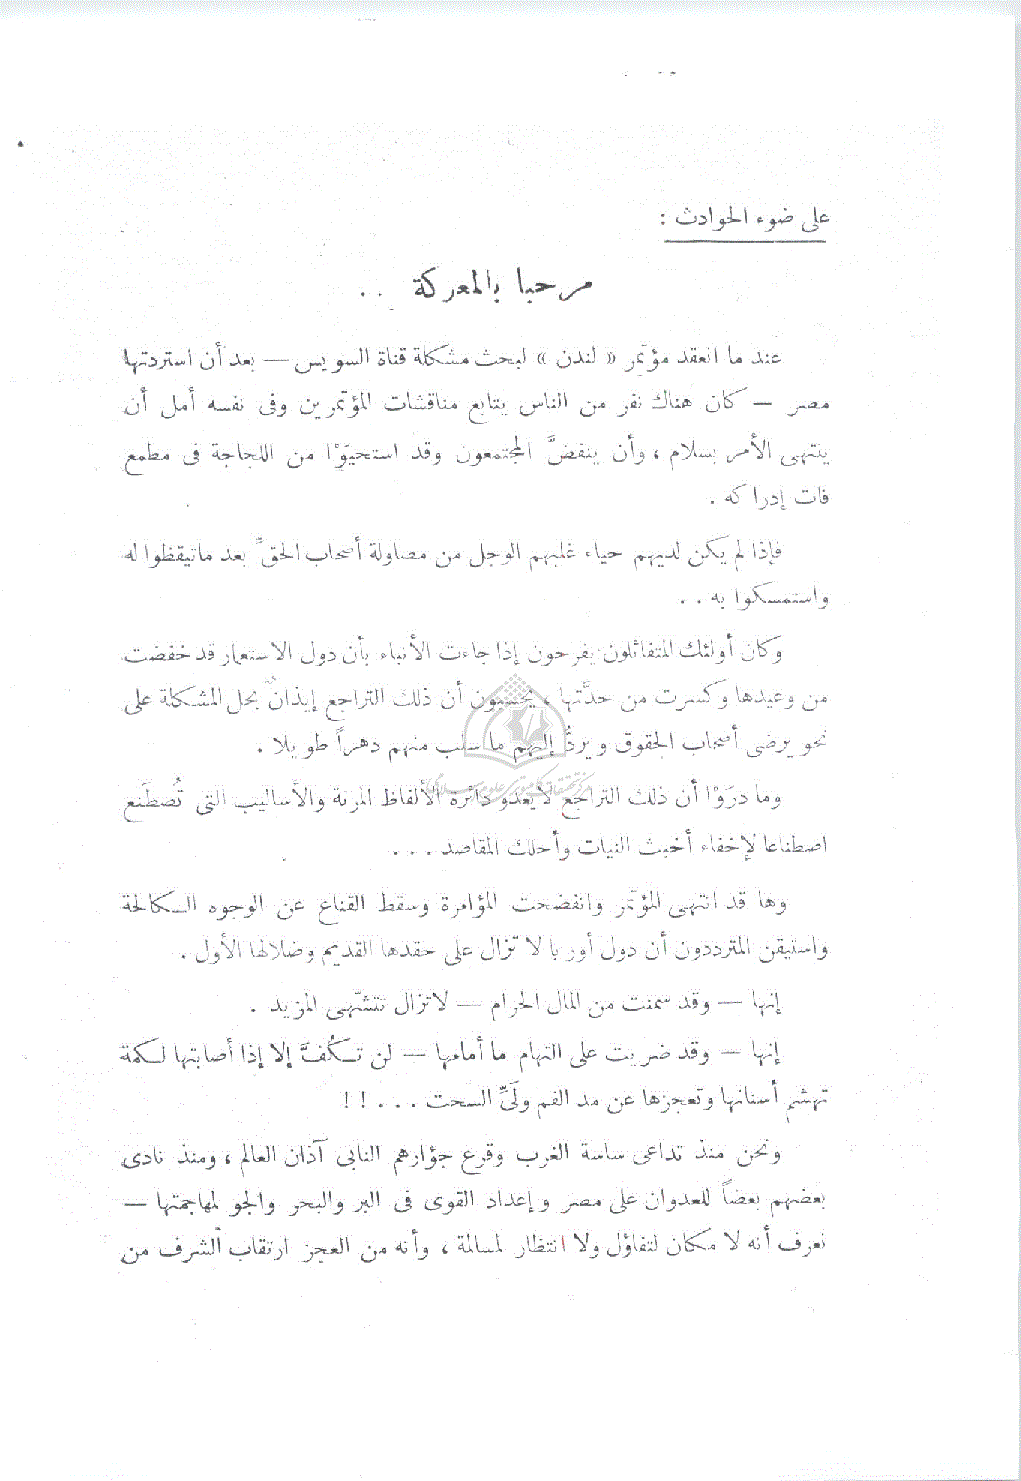 على ضوء الحوادث :
مرحبا بالمعركة . .
عند ما انعقد مؤتمر « لندن » لبحث مشكلة قناة السويس — بعد أن استردتها
مصر — كان هناك نفر من الناس يتابع مناقشات المؤتمرين وفى نفسه أمل أن
ينتهى الأمر بسلام ، وأن ينفضَّ المجتمعون وقد استحيَوْا من اللجاجة فى مطمع
فات إدراكه .
فإذا لم يكن لديهم حياء غلبهم الوجل من مصاولة أصحاب الحقِّ بعد ماتيقظوا له
واستمسكوا به . .
وكان أولئك المتفائلون يفرحون إذا جاءت الأنباء بأن دول الاستعمار قد خفضت
من وعيدها وكسرت من حدَّتها ، يحسبون أن ذلك التراجع إيذانٌ بحل المشكلة على
نحو يرضى أصحاب الحقوق ويردُّ إليهم ما سلب منهم دهراً طويلا .
وما درَوْا أن ذلك التراجع لا يعدو دائرة الألفاظ المرنة والأساليب التى تُصْطَنع
اصطناعا لإخفاء أخبث النيات وأحلك المقاصد . . .
وها قد انتهى المؤتمر وانفضحت المؤامرة وسقط القناع عن الوجوه الكالحة
واستيقن المترددون أن دول أوربا لا تزال على حقدها القديم وضلالها الأول .
إنها — وقد سمنت من المال الحرام — لاتزال تتشهّى المزيد .
إنها — وقد ضريت على التهام ما أمامها — لن تكُفَّ إلا إذا أصابتها لكمة
تهشم أسنانها وتعجزها عن مد الفم ولَىِّ السحت . . . ! !
ونحن منذ تداعى ساسة الغرب وقرع جؤارهم النابى آذان العالم ، ومنذ نادى
بعضهم بعضاً للعدوان على مصر وإعداد القوى فى البر والبحر والجو لمهاجمتها —
نعرف أنه لا مكان لتفاؤل ولا انتظار لمسالمة ، وأنه من العجز ارتقاب الشرف من